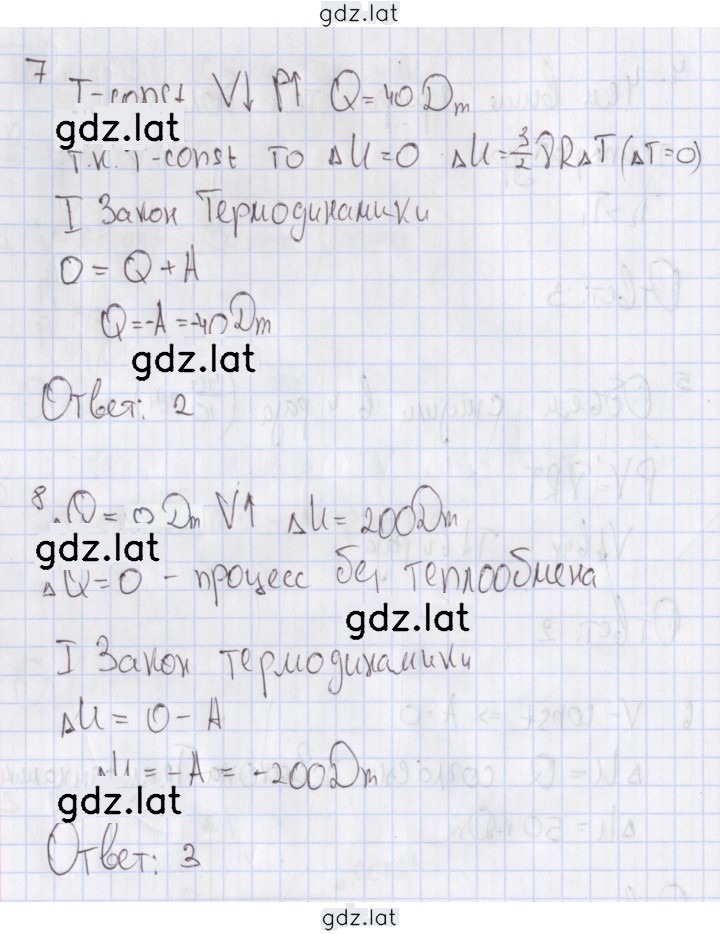 gdz.lat
7 T-const V↓ P↑ Q=40Dm
gdz.lat
т.к. T-const то ΔU=0 ΔU=3/2 νRΔT (ΔT=0)
I Закон Термодинамики
0 = Q + A
Q=-A=-40Dm
gdz.lat
Ответ: 2
8. Q = 0 Dm V↑ ΔU = 200Dm
gdz.lat
ΔQ=0 - процесс без теплообмена
gdz.lat
I Закон термодинамики
ΔU = 0 - A
ΔU = -A = -200Dm
gdz.lat
Ответ: 3
gdz.lat